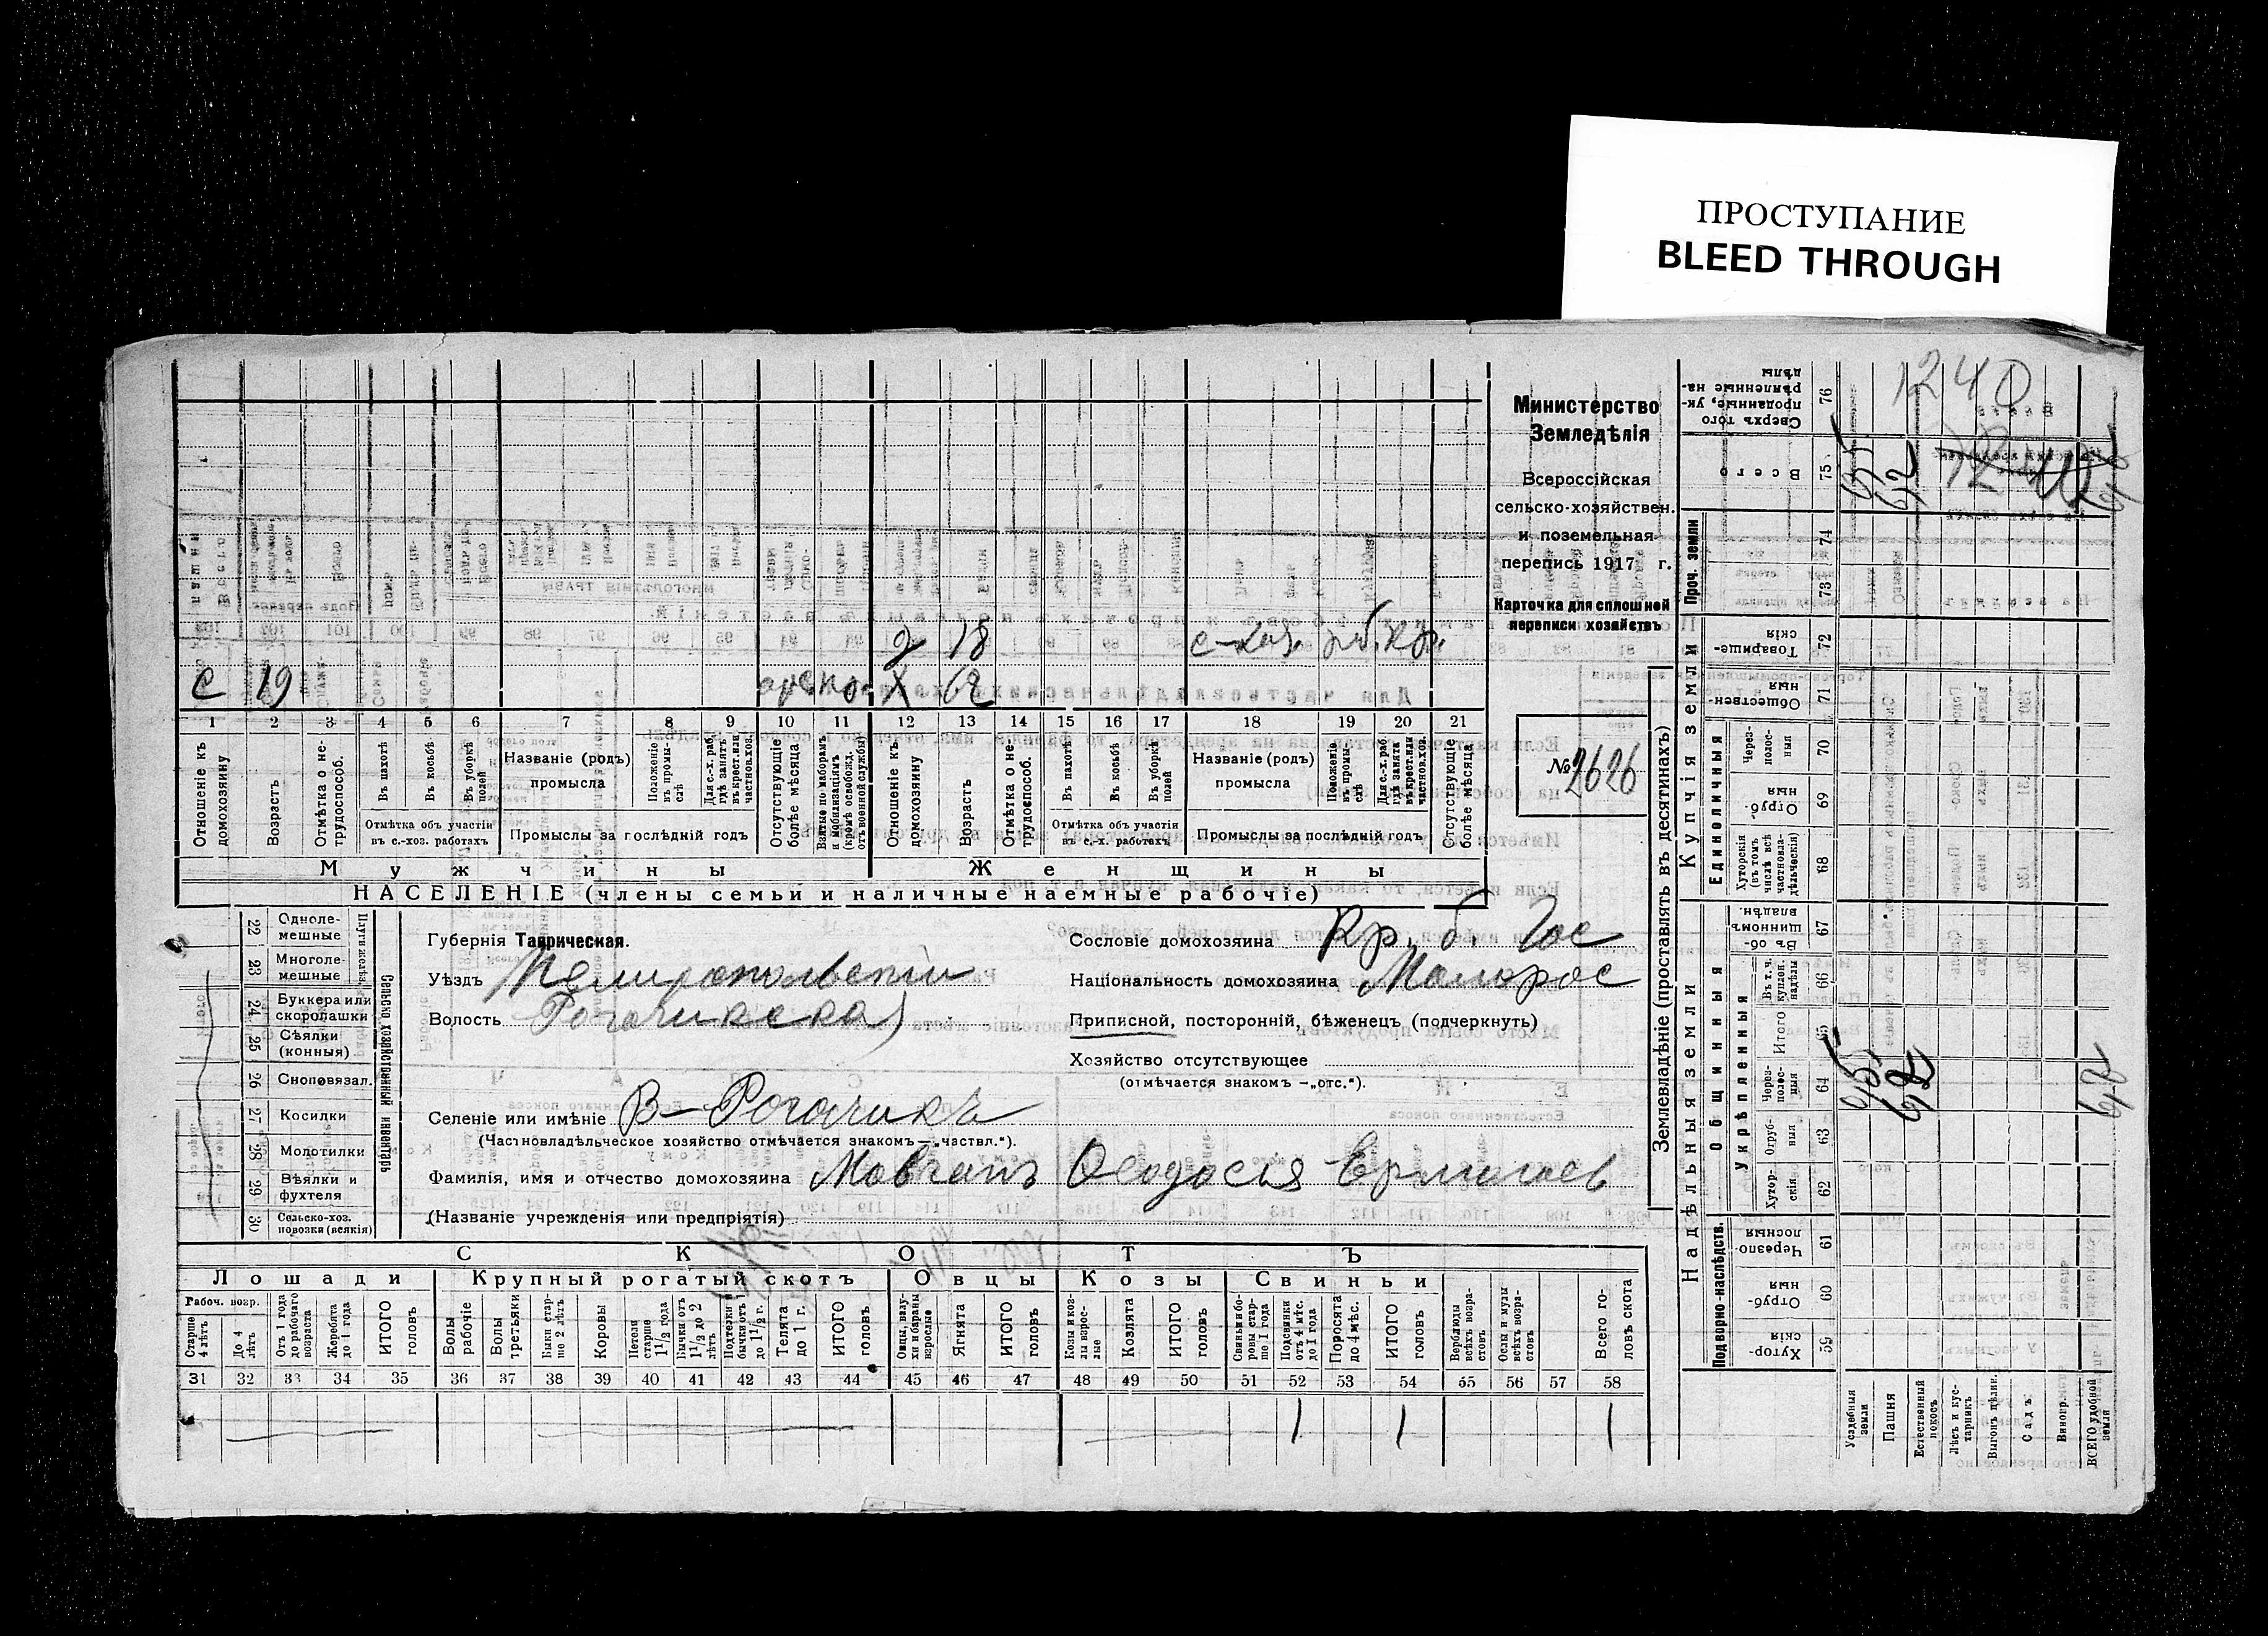 ПРОСТУПАНИЕ
BLEED THROUGH
Министерство
Земледѣлія
Всероссійская
сельско-хозяйствен.
и поземельная
перепись 1917 г.
Карточка для сплошной
переписи хозяйствъ
№ 2626
1240
д 18 с-хоз. рб. кр.
с 19 Х 62
1 2 3 4 5 6 7 8 9 10 11 12 13 14 15 16 17 18 19 20 21
Отношеніе къ домохозяину
Возрастъ
Отмѣтка о нетрудоспособ.
Въ пахотѣ
Въ косьбѣ
Въ уборкѣ полей
Отмѣтка объ участіи
въ с.-хоз. работахъ
Названіе (родъ)
промысла
Положеніе въ промыслѣ
Для с.-х. раб. гдѣ занятъ въ крест. или частнов. хоз.
Промыслы за послѣдній годъ
Отсутствующіе болѣе мѣсяца
Взятые по наборамъ и мобилизаціямъ (кромѣ освобожд. отъ военной службы)
Отношеніе къ домохозяину
Возрастъ
Отмѣтка о нетрудоспособ.
Въ пахотѣ
Въ косьбѣ
Въ уборкѣ полей
Отмѣтка объ участіи
въ с.-х. работахъ
Названіе (родъ)
промысла
Положеніе въ промыслѣ
Для с.-х. раб. гдѣ занята въ крест. или частнов. хоз.
Промыслы за послѣдній годъ
Отсутствующіе болѣе мѣсяца
Мужчины Женщины
НАСЕЛЕНІЕ (члены семьи и наличные наемные рабочіе)
22 Одноле-
мешные
23 Многоле-
мешные
Плуги желѣз.
24 Буккера или
скоропашки
25 Сѣялки
(конныя)
26 Сноповязал.
27 Косилки
28 Молотилки
29 Вѣялки и
фухтеля
30 Сельско-хоз.
повозки (всякія)
Сельско хозяйственный инвентарь
Губернія Таврическая.
Уѣздъ Мелитопольскій
Волость Рогачикская
Селеніе или имѣніе В-Рогачикъ
(Частновладѣльческое хозяйство отмѣчается знакомъ—„частвл.“).
Фамилія, имя и отчество домохозяина Мовчанъ Ѳеодосія
(Названіе учрежденія или предпріятія)
Сословіе домохозяина Кр. б. Гос
Національность домохозяина Малорос
Приписной, посторонній, бѣженецъ (подчеркнуть)
Хозяйство отсутствующее
(отмѣчается знакомъ —„отс.“).
СКОТЪ
Лошади Крупный рогатый скотъ Овцы Козы Свиньи
Рабоч. возр.
Старше 4 лѣтъ
До 4 лѣтъ
Отъ 1 года до рабочаго возраста
Жеребята до 1 года
ИТОГО головъ
Волы рабочіе
Волы третьяки
Быки старше 2 лѣтъ
Коровы
Нетели старше 1 1/2 года
Бычки отъ 1 1/2 до 2 лѣтъ
Подтелки и бычки отъ 1 до 1 1/2 г.
Телята до 1 г.
ИТОГО головъ
Овцы, валухи и бараны взрослые
Ягнята
ИТОГО головъ
Козы и козлы взрослые
Козлята
ИТОГО головъ
Свиньи и боровы старше 1 года
Подсвинки отъ 4 мѣс. до 1 года
Поросята до 4 мѣс.
ИТОГО головъ
Верблюды всѣхъ возрастовъ
Ослы и мулы всѣхъ возрастовъ
Всего головъ скота
31 32 33 34 35 36 37 38 39 40 41 42 43 44 45 46 47 48 49 50 51 52 53 54 55 56 57 58
1 1 1
Землевладѣніе (проставлять въ десятинахъ)
Купчія земли
Надѣльныя земли
Сверхъ того проданные, укрѣпленные надѣлы 76
Всего 75
Проч. земли
74
73
Товарищескія 72
Общественныя 71
Единоличныя
Черезполосныя 70
Отрубныя 69
Хуторскія (въ томъ числѣ всѣ частновладѣльческія) 68
Общинныя
Въ общинномъ владѣн. 67
Укрѣпленныя
Въ т. ч. куплен. надѣлы 66
Итого 65
Черезполосныя 64
Отрубныя 63
Хуторскія 62
Подворно-наслѣдств.
Черезполосныя 61
Отрубныя 60
Хуторскія 59
Усадебныя земли
Пашня
Естественный покосъ
Лѣсъ и кустарникъ
Выгонъ цѣлин.
Садъ
Виногр.
ВСЕГО удобной земли